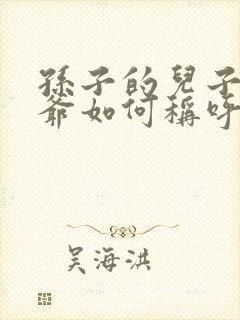 孫子的兒子
爺如何稱呼
吳海洪